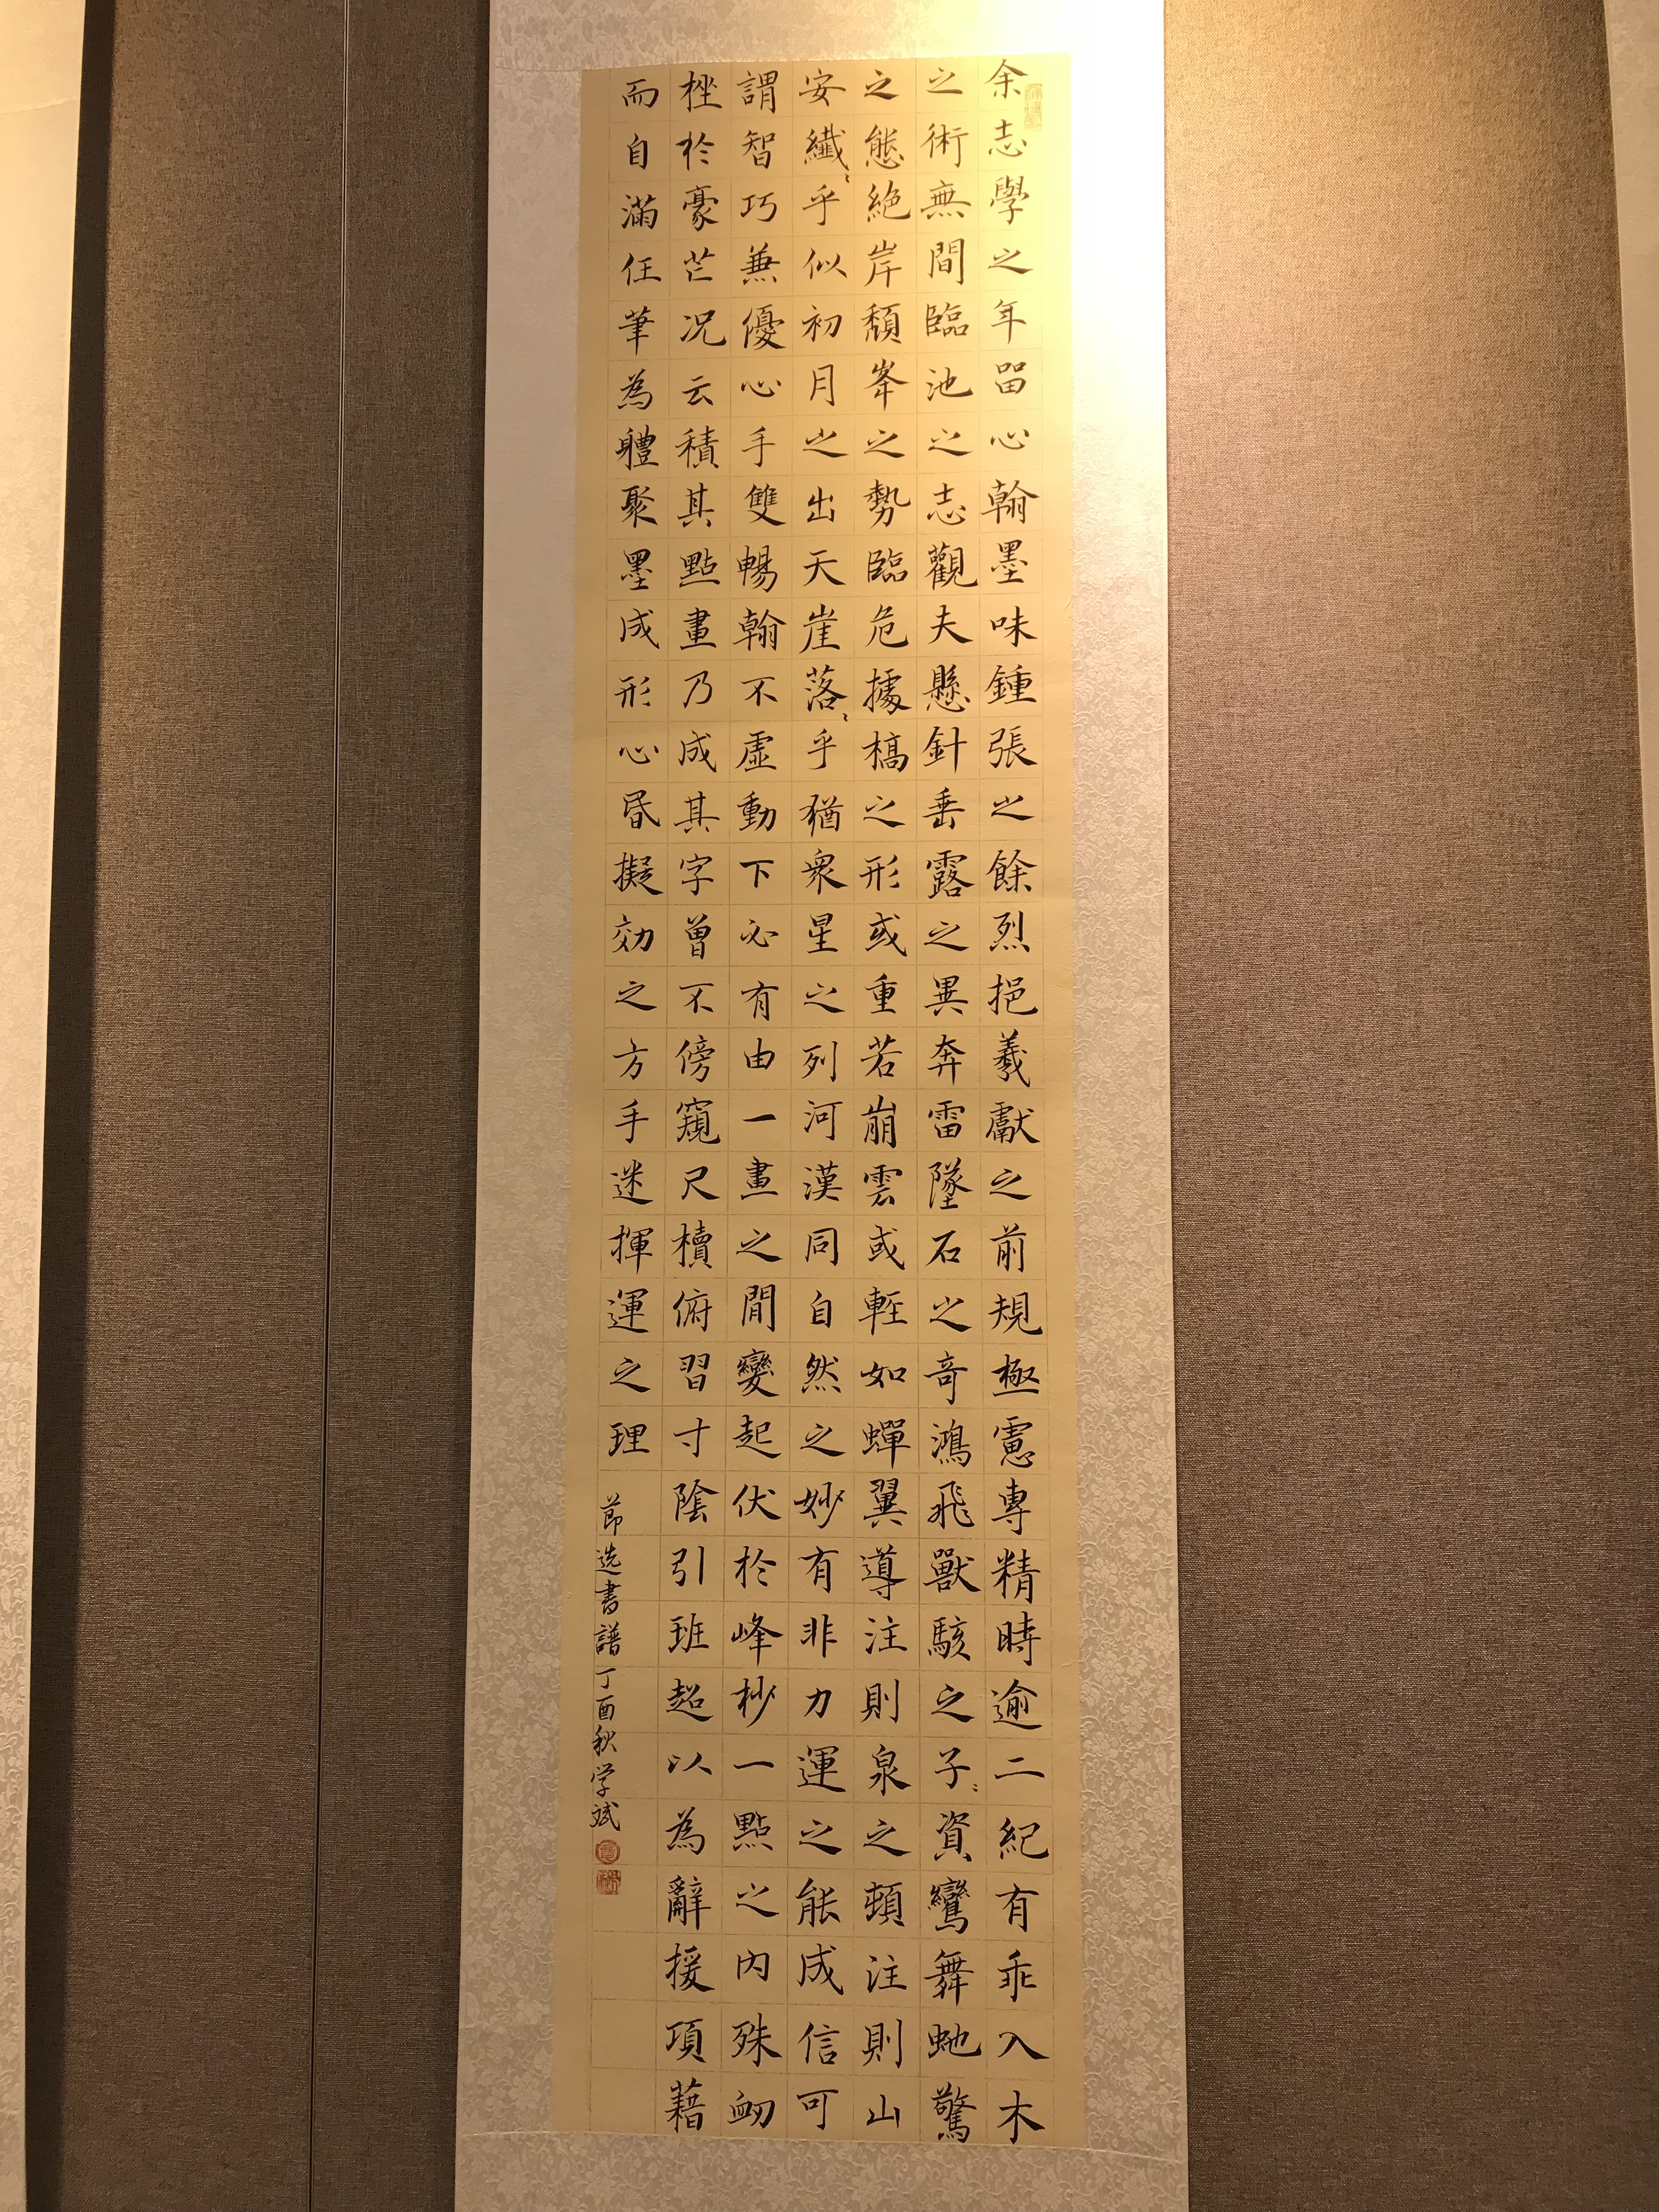 余志學之年留心翰墨味鍾張之餘烈挹羲獻之前規極慮專精時逾二紀有乖入木
之術無間臨池之志觀夫懸針垂露之異奔雷墜石之奇鴻飛獸駭之子〻資鸞舞虵驚
之態絕岸頹峯之勢臨危據槁之形或重若崩雲或輕如蟬翼導注則泉之頓注則山
安纖〻乎似初月之出天崖落〻乎猶衆星之列河漢同自然之妙有非力運之能成信可
謂智巧兼優心手雙暢翰不虛動下必有由一畫之間變起伏於峰杪一點之內殊衂
挫於豪芒况云積其點畫乃成其字曾不傍窺尺櫝俯習寸陰引班超以為辭援項藉
而自滿任筆為體聚墨成形心昏擬效之方手迷揮運之理
節选書譜丁酉秋学斌